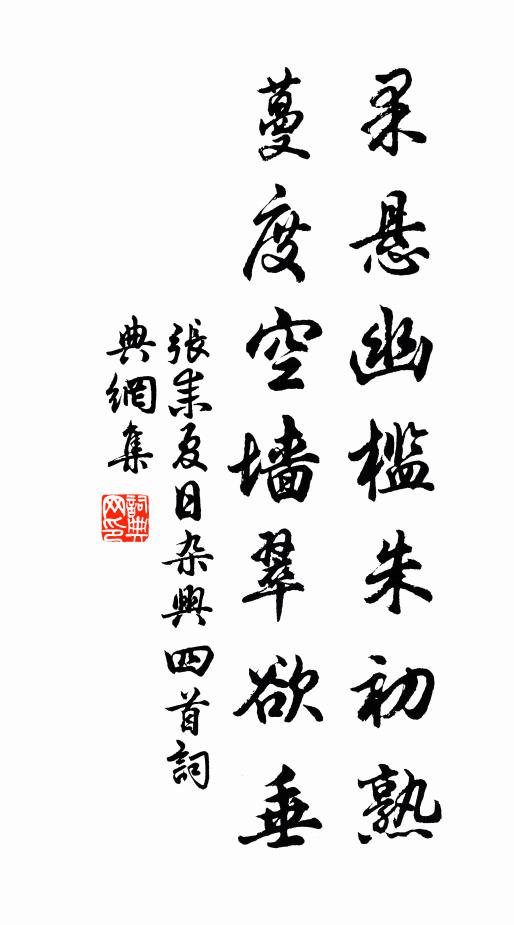 果悬幽槛朱初熟
蔓度空墙翠欲垂
張耒夏日杂興四首詞
典網集
詞典网印